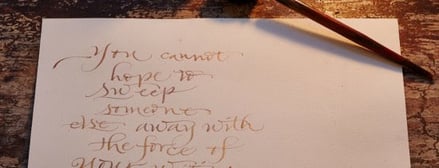 You cannot
hope to
sweep
someone
else away with
the force of
your